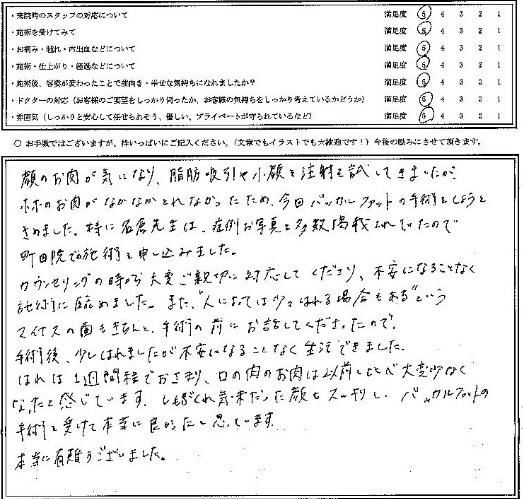 ・来院時のスタッフの対応について 満足度 5 4 3 2 1
・施術を受けてみて 満足度 5 4 3 2 1
・お痛み・腫れ・内出血などについて 満足度 5 4 3 2 1
・施術・仕上がり・経過などについて 満足度 5 4 3 2 1
・施術後、容姿が変わったことで前向き・幸せな気持ちになれましたか? 満足度 5 4 3 2 1
・ドクターの対応(お客様のご要望をしっかり伺ったか、お客様の気持ちをしっかり考えているかどうか) 満足度 5 4 3 2 1
・雰囲気(しっかりと安心して任せられそう、優しい、プライベートが守られているなど) 満足度 5 4 3 2 1
○ お手数ではございますが、枠いっぱいにご記入ください。(文章でもイラストでも大歓迎です!)今後の励みにさせて頂きます。
顔のお肉が気になり、脂肪吸引や小顔注射を試してきましたが、
ホホのお肉がなかなかとれなかったため、今回バッカルファットの手術をしようと
きめました。特に名倉先生は、症例お写真を多数掲載されていたので
町田院で施術を申し込みました。
カウンセリングの時から大変ご親切に対応してくださり、不安になることなく
施術に臨めました。また、"人によっては少々はれる場合もある"という
マイナスの面もきちんと、手術の前にお話してくださったので、
手術後、少しはれましたが不安になることなく生活できました。
はれは1週間程でおさまり、口の肉のお肉は以前と比べ大変少なく
なったと感じています。しもぶくれ気味だった顔もスッキリし、バッカルファットの
手術を受けて本当に良かったと思っています。
本当に有難うございました。